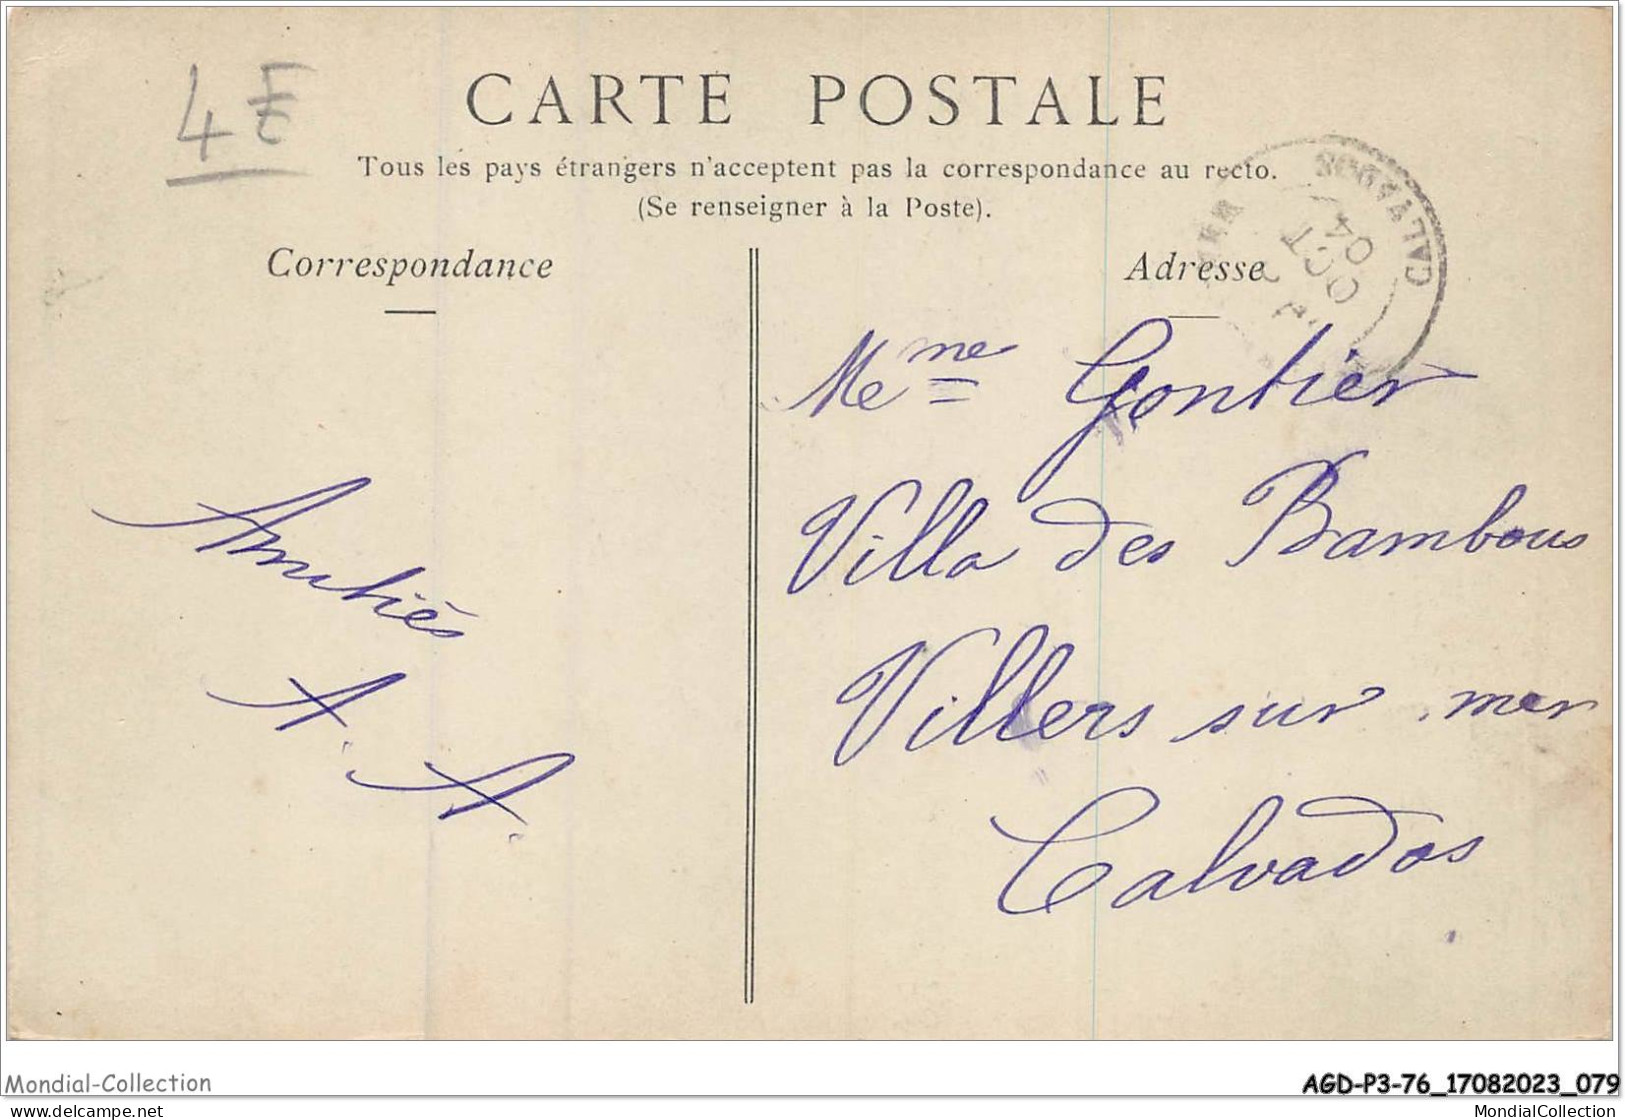 4 E
CARTE POSTALE
Tous les pays étrangers n'acceptent pas la correspondance au recto.
(Se renseigner à la Poste).
Correspondance
Adresse
CALVADOS
OCT
04
Mme Gontier
Villa des Bambous
Villers sur mer
Calvados
Amitiés
A. A.
Mondial-Collection
AGD-P3-76_17082023_079
www.delcampe.net
MondialCollection